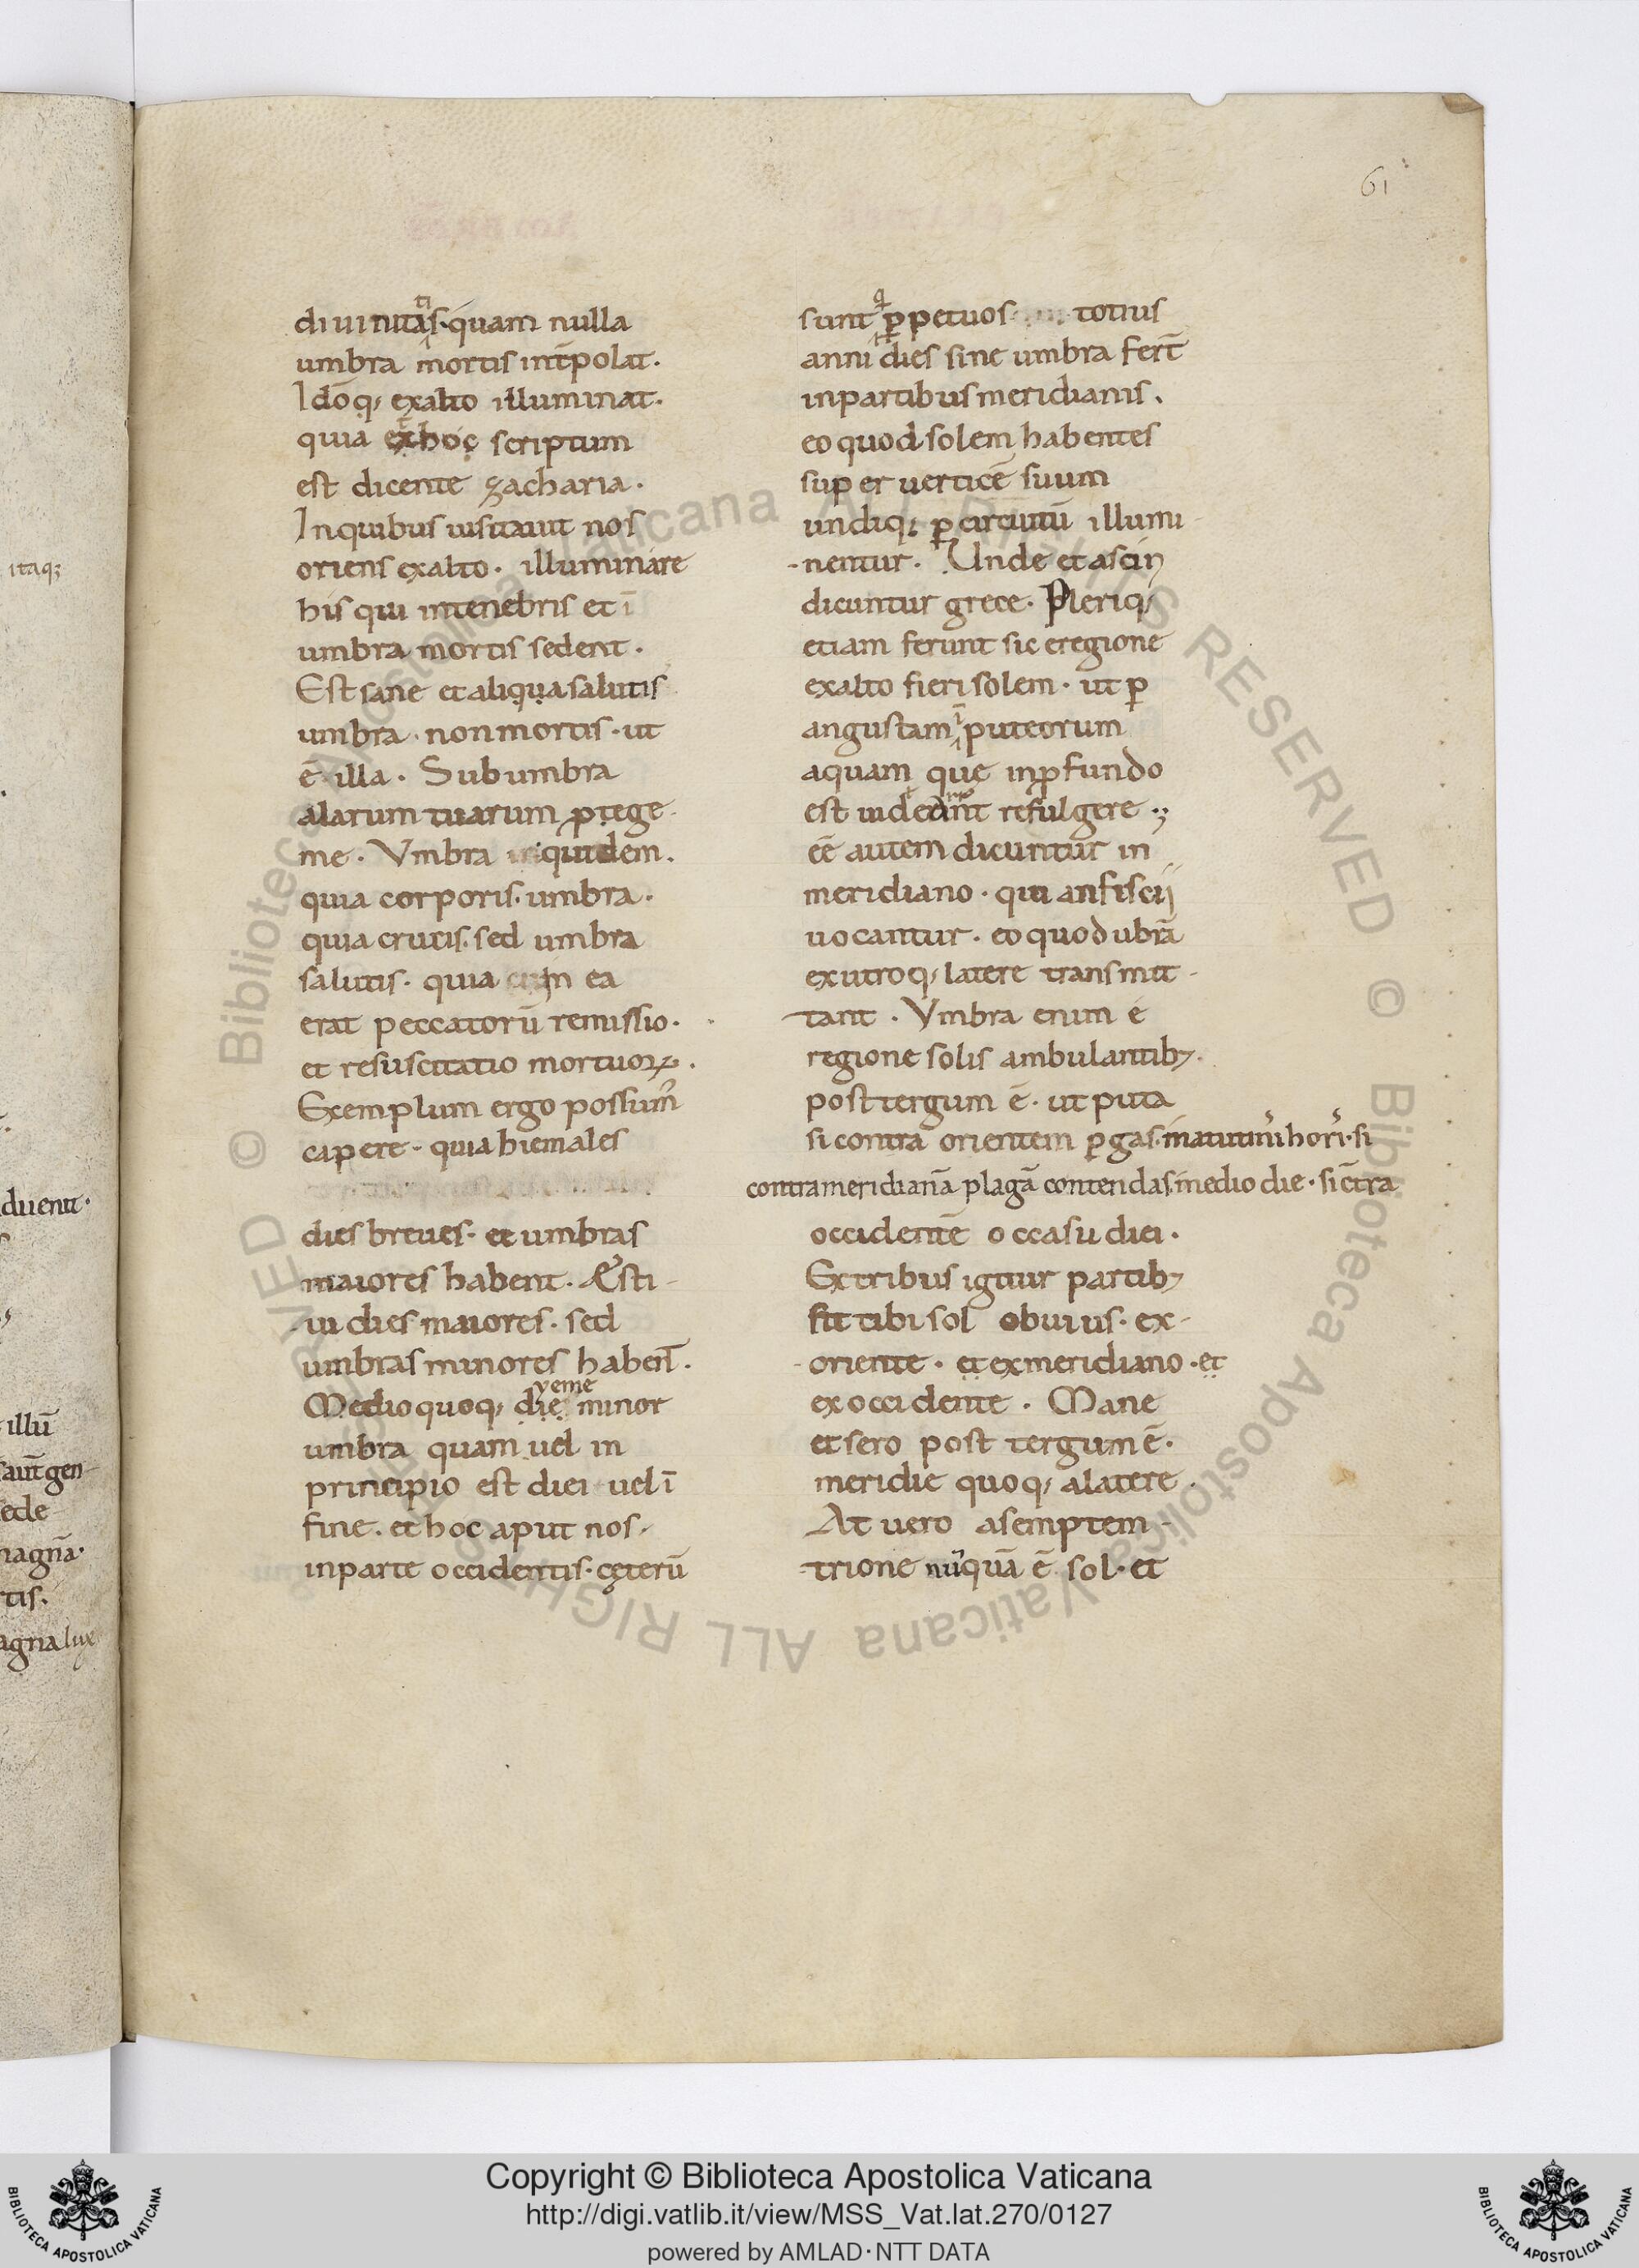 61
diuinitatis· quam nulla
umbra mortis int̄polat·
Idōq; exalto illuminat·
quia ex hoc scriptum
est dicente zacharia·
Inquibus uisitauit nos
oriens exalto· illuminare
his qui intenebris et ī
umbra mortis sedent·
Est sane et aliqua salutis
umbra· non mortis· ut
ē illa· Sub umbra
alarum tuarum ꝓtege
me· Vmbra quidem·
quia corporis· umbra·
quia crucis· sed umbra
salutis· quia in ea
erat peccatorū remissio·
et resuscitatio mortuoꝝ·
Exemplum ergo possum᾽
capere· quia hiemales
dies breues· et umbras
maiores habent· Æsti-
ui dies maiores· sed
umbras minores haben̄t·
yeme
Medio quoq; die minor
umbra quam uel in
principio est diei uel ī
fine· et hoc aput nos·
inparte occidentis· cęterū
sunt q̇ ꝑpetuos totius
anni dies sine umbra fer̄t
inpartibus meridianis·
eo quod solem habentes
super uerticē suum
undiq; ꝑ circuitū illumi-
nentur· Unde et ascij
dicuntur grece· Pleriq;
etiam ferunt sic eregione
exalto fieri solem· ut ꝑ
angustam ī puteorum
aquam quę inꝓfundo
est uideant refulgere·;
eē autem dicuntur in
meridiano· qui anfiscij
uocantur· eo quod ubrā
exutroq; latere transmit-
tant· Vmbra enim e
regione solis ambulantib;
post tergum ē· ut puta
si contra orientem ꝑgas matutinis horis· si
contra meridianā plagā contendas medio die· si c̄tra
occidentē occasu diei·
Extribus igitur partib;
fit tibi sol obuius· ex-
oriente· et exmeridiano· et
exoccidente· Mane
et sero post tergum ē·
meridie quoq; alatere·
At uero asemptem-
trione nūquā ē sol· et
itaq;
duent·
illū
aut̄ gen-
ede
magnā·
tis·
agna lux
© Biblioteca Apostolica Vaticana ALL RIGHTS RESERVED © Biblioteca Apostolica Vaticana ALL RIGHTS RESERVED
Copyright © Biblioteca Apostolica Vaticana
http://digi.vatlib.it/view/MSS_Vat.lat.270/0127
powered by AMLAD·NTT DATA
BIBLIOTECA APOSTOLICA VATICANA
BIBLIOTECA APOSTOLICA VATICANA